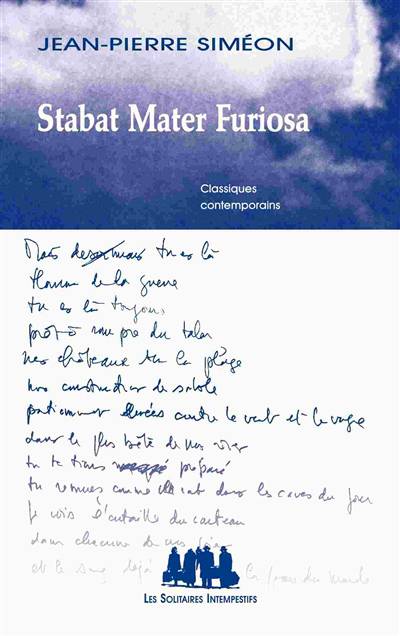 JEAN-PIERRE SIMÉON
Stabat Mater Furiosa
Classiques
contemporains
Mais desormais tu es là
Homme de la guerre
tu es là toujours
prêt à rompre du talon
nos châteaux sur la plage
nos construction de sable
patiemment élevées contre le vent et la vague
dans le plus bête de nos
tu te tiens préparé
tu remues comme rat dans les caves du jour
Je vois l'entaille du couteau
dans chacun de nos
et le sang déjà la peau du monde
LES SOLITAIRES INTEMPESTIFS